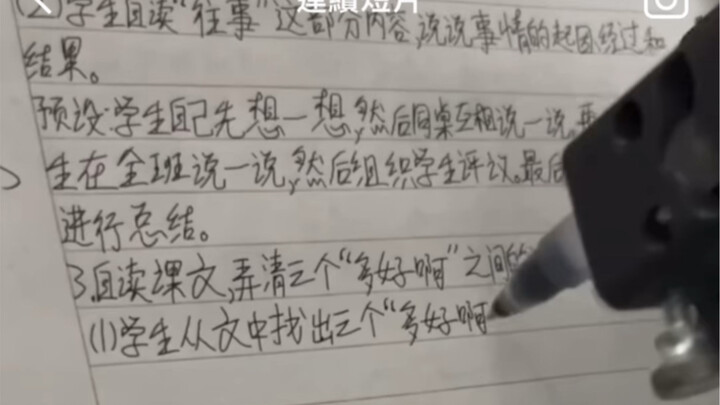 連續短片
(2)学生自读“往事”这部分内容,说说事情的起因经过和
结果。
预设:学生自己先想一想,然后同桌互相说一说,再
生在全班说一说,然后组织学生评议。最后
进行总结。
3.自读课文,弄清三个“多好啊”之间的
(1)学生从文中找出三个“多好啊